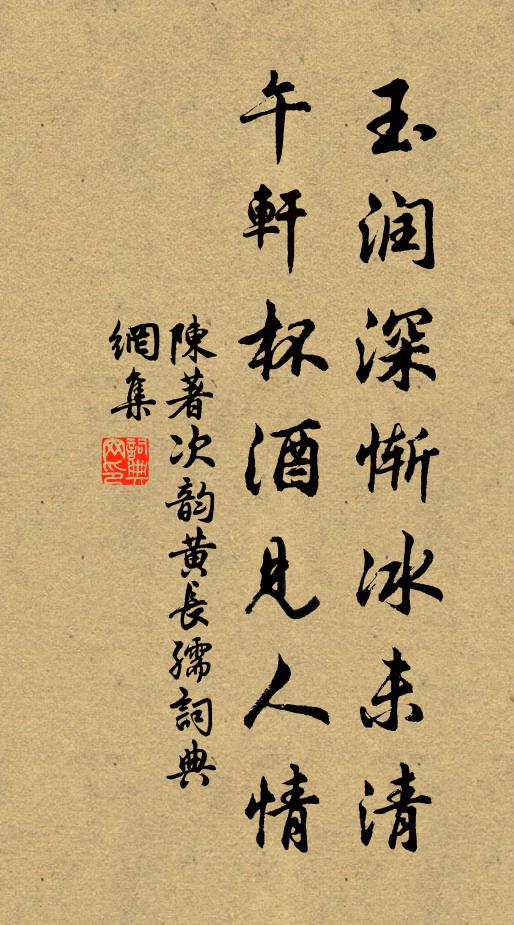 玉润深惭冰未清
午軒杯酒見人情
陳著次韵黄長孺詞典
網集
詞典網印